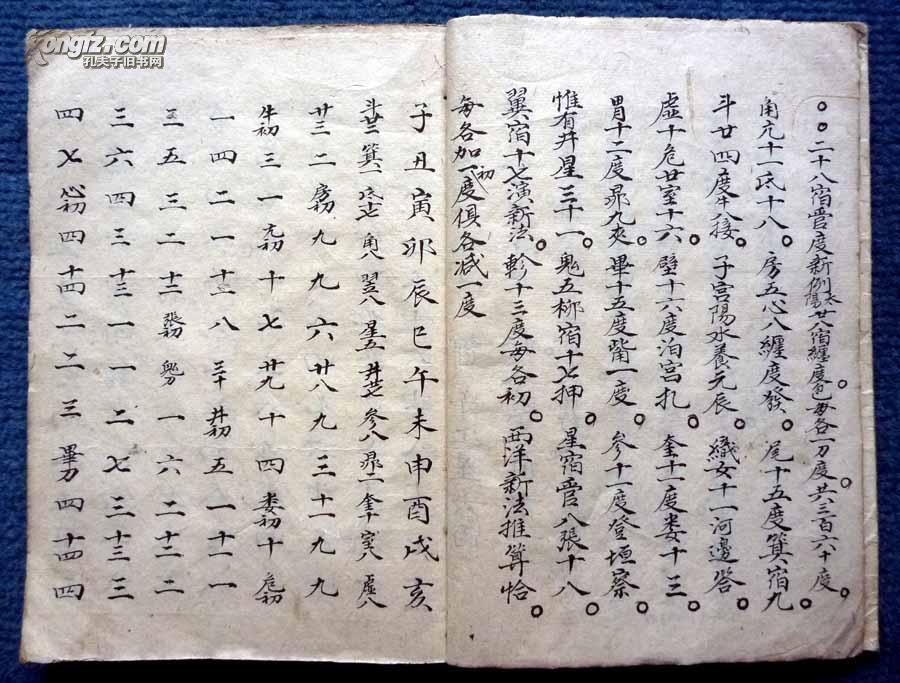 kongfz.com
孔夫子旧书网
二十八宿管度新例太陽廿八宿纏度也每各一初度共三百六十度
角亢十一氐十八 房五心八纏度發 尾十五度箕宿九
斗廿四度牛八接 子宫陽水養元辰 織女十一河邊答
虛十危廿室十六 壁十六度泊宫扎 奎十一度娄十三
胃十二度昴九夾 畢十五度觜一度 參十一度登垣察
惟有井星三十一 鬼五柳宿十七押 星宿管八張十八
翼宿十七演新法 軫十三度每各初 西洋新法推算恰
每各加一初度俱各减一度
子丑寅卯辰巳午未申酉戌亥
斗廿三 箕一 氐十七 角八 翌八 星五 井廿七 參八 昴二 奎十 室八 虛八
廿三 二 房初 九 九 六 廿八 九 三 十一 九 九
牛初 三 一 亢初 十 七 廿九 十 四 娄初 十 危初
一 四 二 一 十一 八 三十 井初 五 一 十一 一
二 五 三 二 十二 張初 鬼初 一 六 二 十二 二
三 六 四 三 十三 一 一 二 七 三 十三 三
四 七 心初 四 十四 二 二 三 畢初 四 十四 四